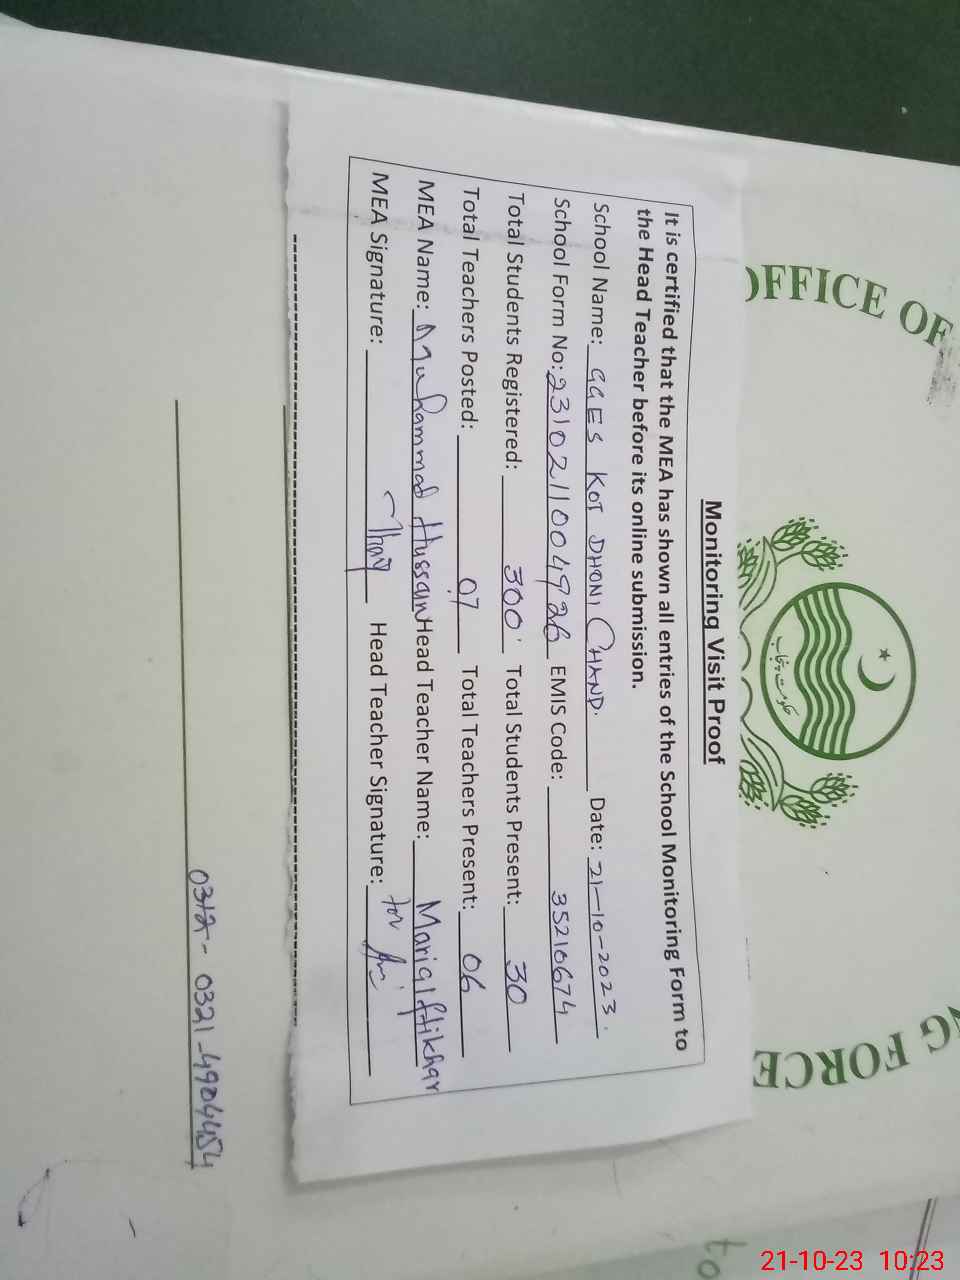 OFFICE OF
NG FORCE
حکومت پنجاب
Monitoring Visit Proof
It is certified that the MEA has shown all entries of the School Monitoring Form to
the Head Teacher before its online submission.
School Name: GGES KOT DHONI CHAND. Date: 21-10-2023.
School Form No: 2310211004926 EMIS Code: 35210674
Total Students Registered: 300 Total Students Present: 30
Total Teachers Posted: 07 Total Teachers Present: 06
MEA Name: Muhammad Hussain Head Teacher Name: Maria Iftikhar
MEA Signature: Head Teacher Signature: for
0312- 0321-4904454
to
21-10-23 10:23